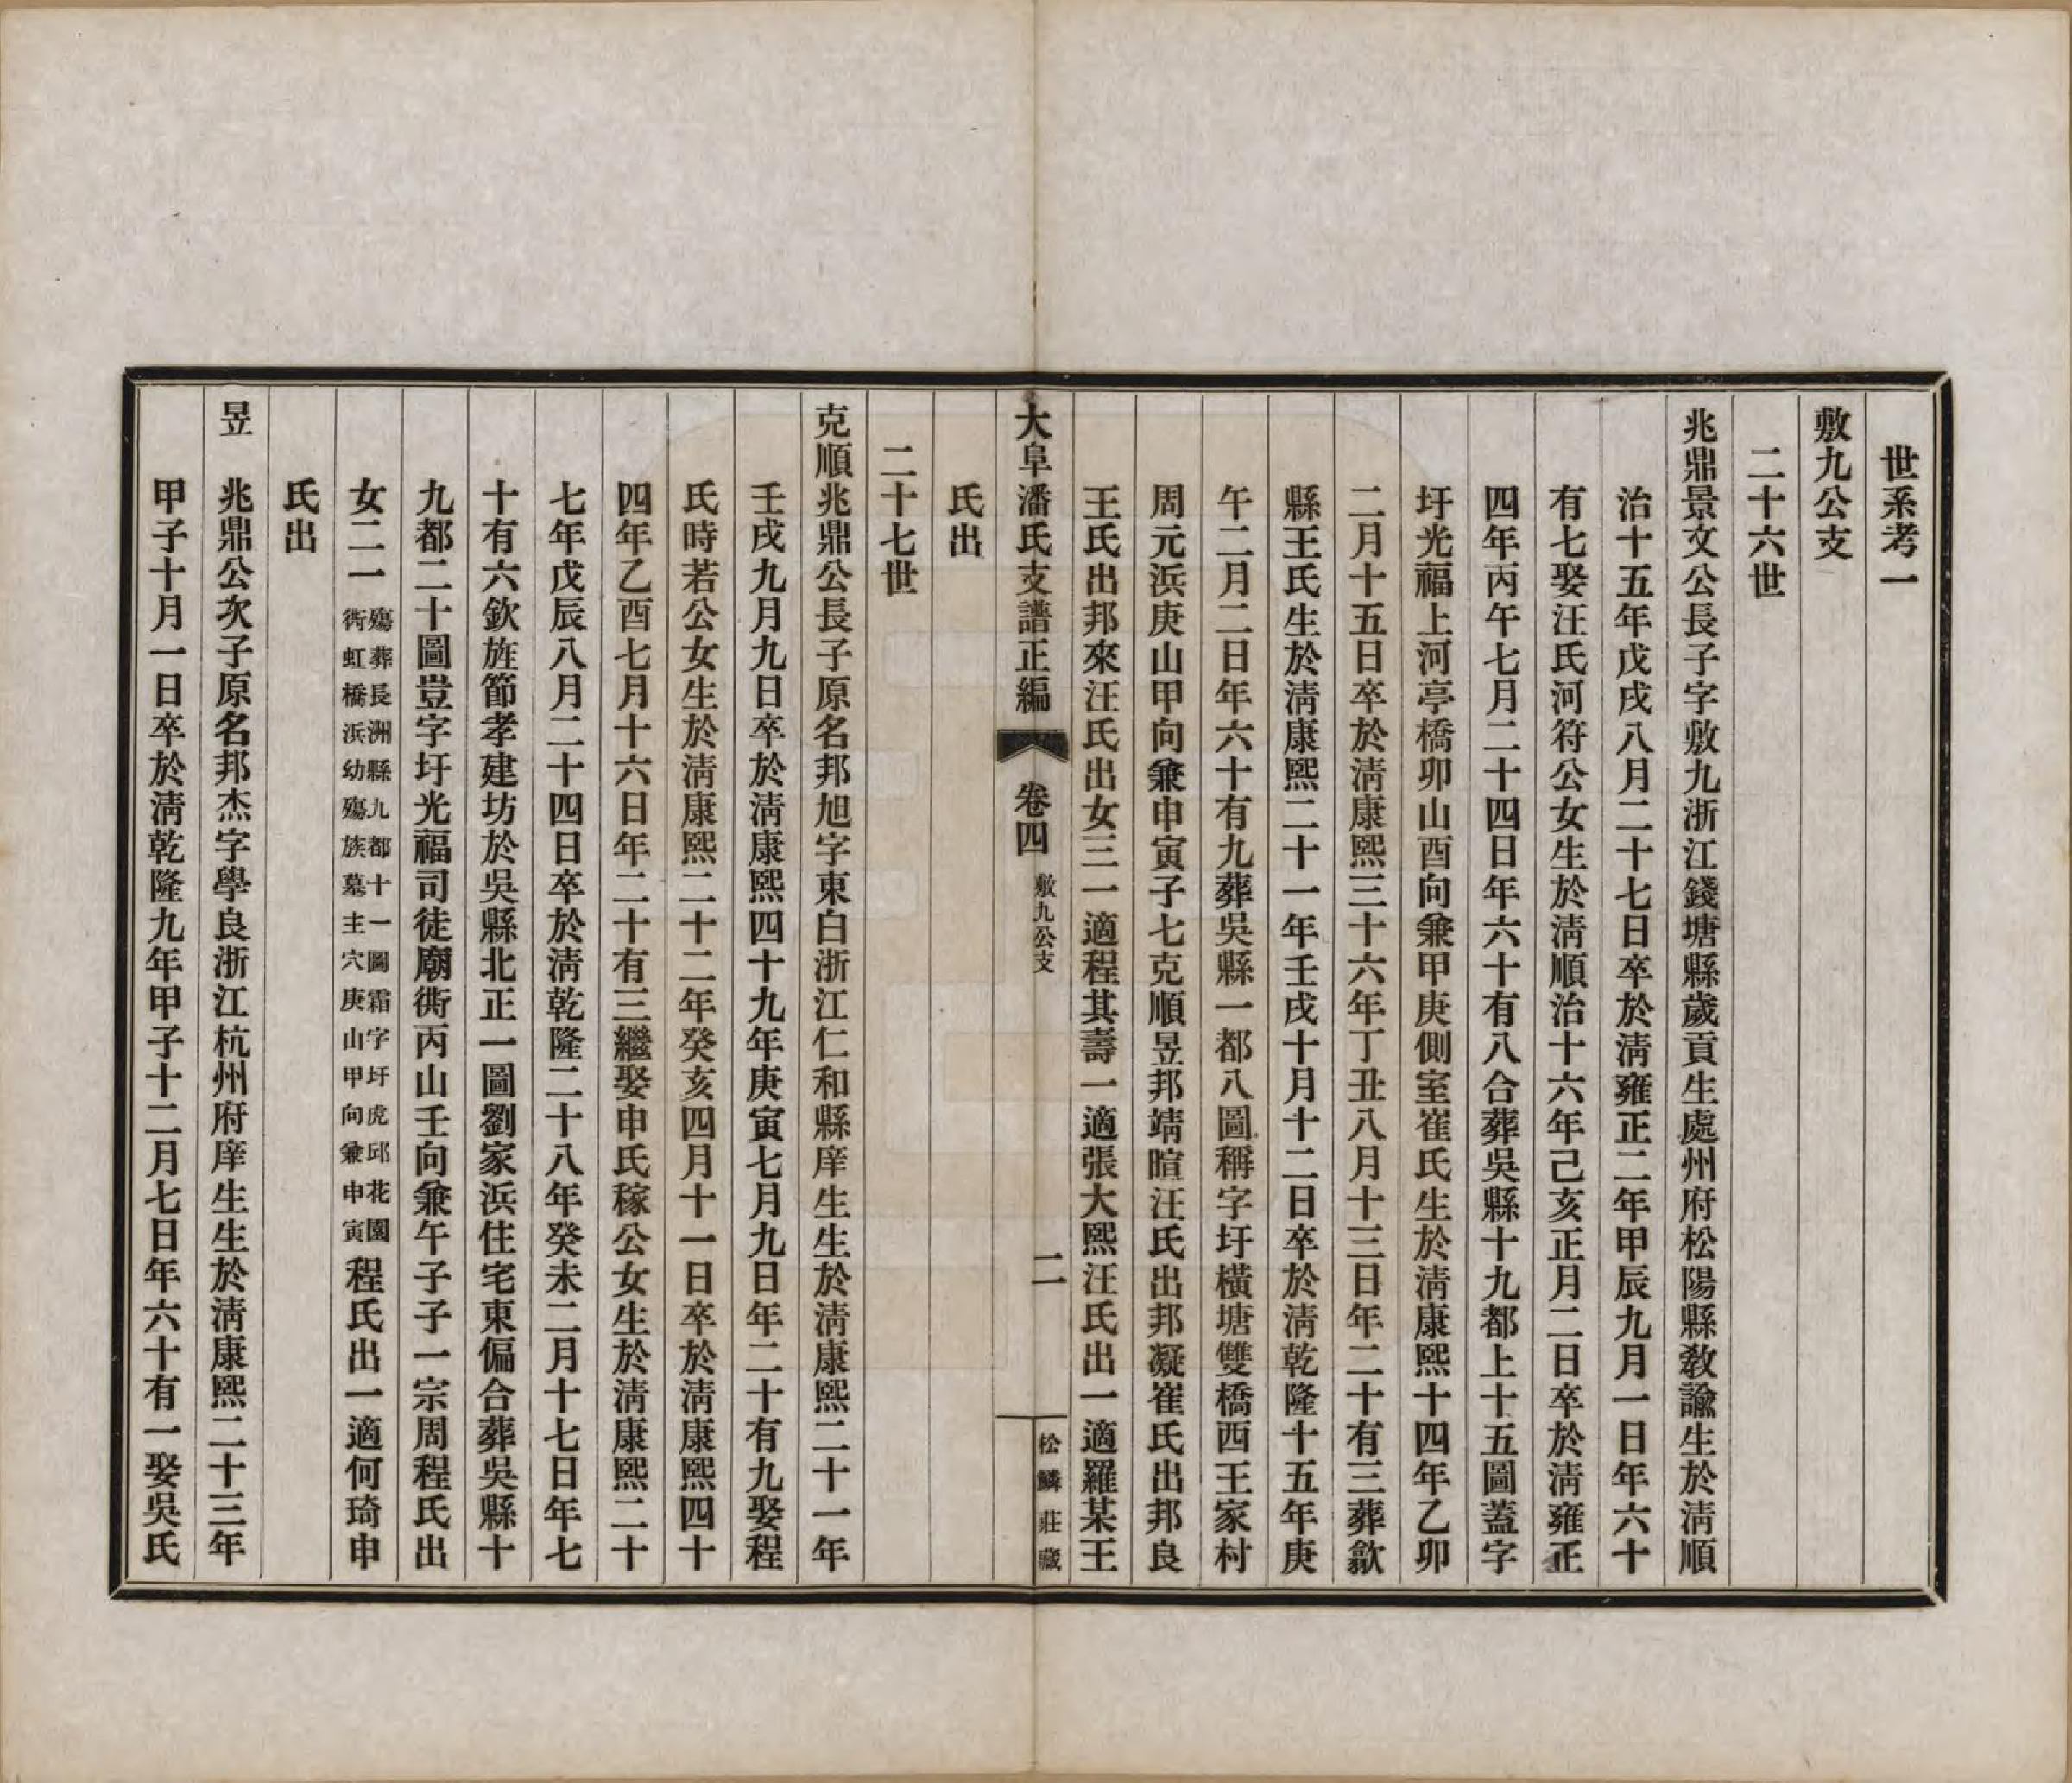 世系考一
敷九公支
二十六世
兆鼎景文公長子字敷九浙江錢塘縣歲貢生處州府松陽縣教諭生於淸順
治十五年戊戌八月二十七日卒於淸雍正二年甲辰九月一日年六十
有七娶汪氏河符公女生於淸順治十六年己亥正月二日卒於淸雍正
四年丙午七月二十四日年六十有八合葬吳縣十九都上十五圖蓋字
圩光福上河亭橋卯山酉向兼甲庚側室崔氏生於淸康熙十四年乙卯
二月十五日卒於淸康熙三十六年丁丑八月十三日年二十有三葬歙
縣王氏生於淸康熙二十一年壬戌十月十二日卒於淸乾隆十五年庚
午二月二日年六十有九葬吳縣一都八圖稱字圩橫塘雙橋西王家村
周元浜庚山甲向兼申寅子七克順昱邦靖暄汪氏出邦凝崔氏出邦良
王氏出邦來汪氏出女三一適程其壽一適張大熙汪氏出一適羅某王
大阜潘氏支譜正編 卷四 敷九公支 二 松鱗莊藏
氏出
二十七世
克順兆鼎公長子原名邦旭字東白浙江仁和縣庠生生於淸康熙二十一年
壬戌九月九日卒於淸康熙四十九年庚寅七月九日年二十有九娶程
氏時若公女生於淸康熙二十二年癸亥四月十一日卒於淸康熙四十
四年乙酉七月十六日年二十有三繼娶申氏稼公女生於淸康熙二十
七年戊辰八月二十四日卒於淸乾隆二十八年癸未二月十七日年七
十有六欽旌節孝建坊於吳縣北正一圖劉家浜住宅東偏合葬吳縣十
九都二十圖豈字圩光福司徒廟衖丙山壬向兼午子子一宗周程氏出
女二一殤葬長洲縣九都十一圖霜字圩虎邱花園衖虹橋浜幼殤族墓主穴庚山甲向兼申寅程氏出一適何琦申
氏出
昱 兆鼎公次子原名邦杰字學良浙江杭州府庠生生於淸康熙二十三年
甲子十月一日卒於淸乾隆九年甲子十二月七日年六十有一娶吳氏